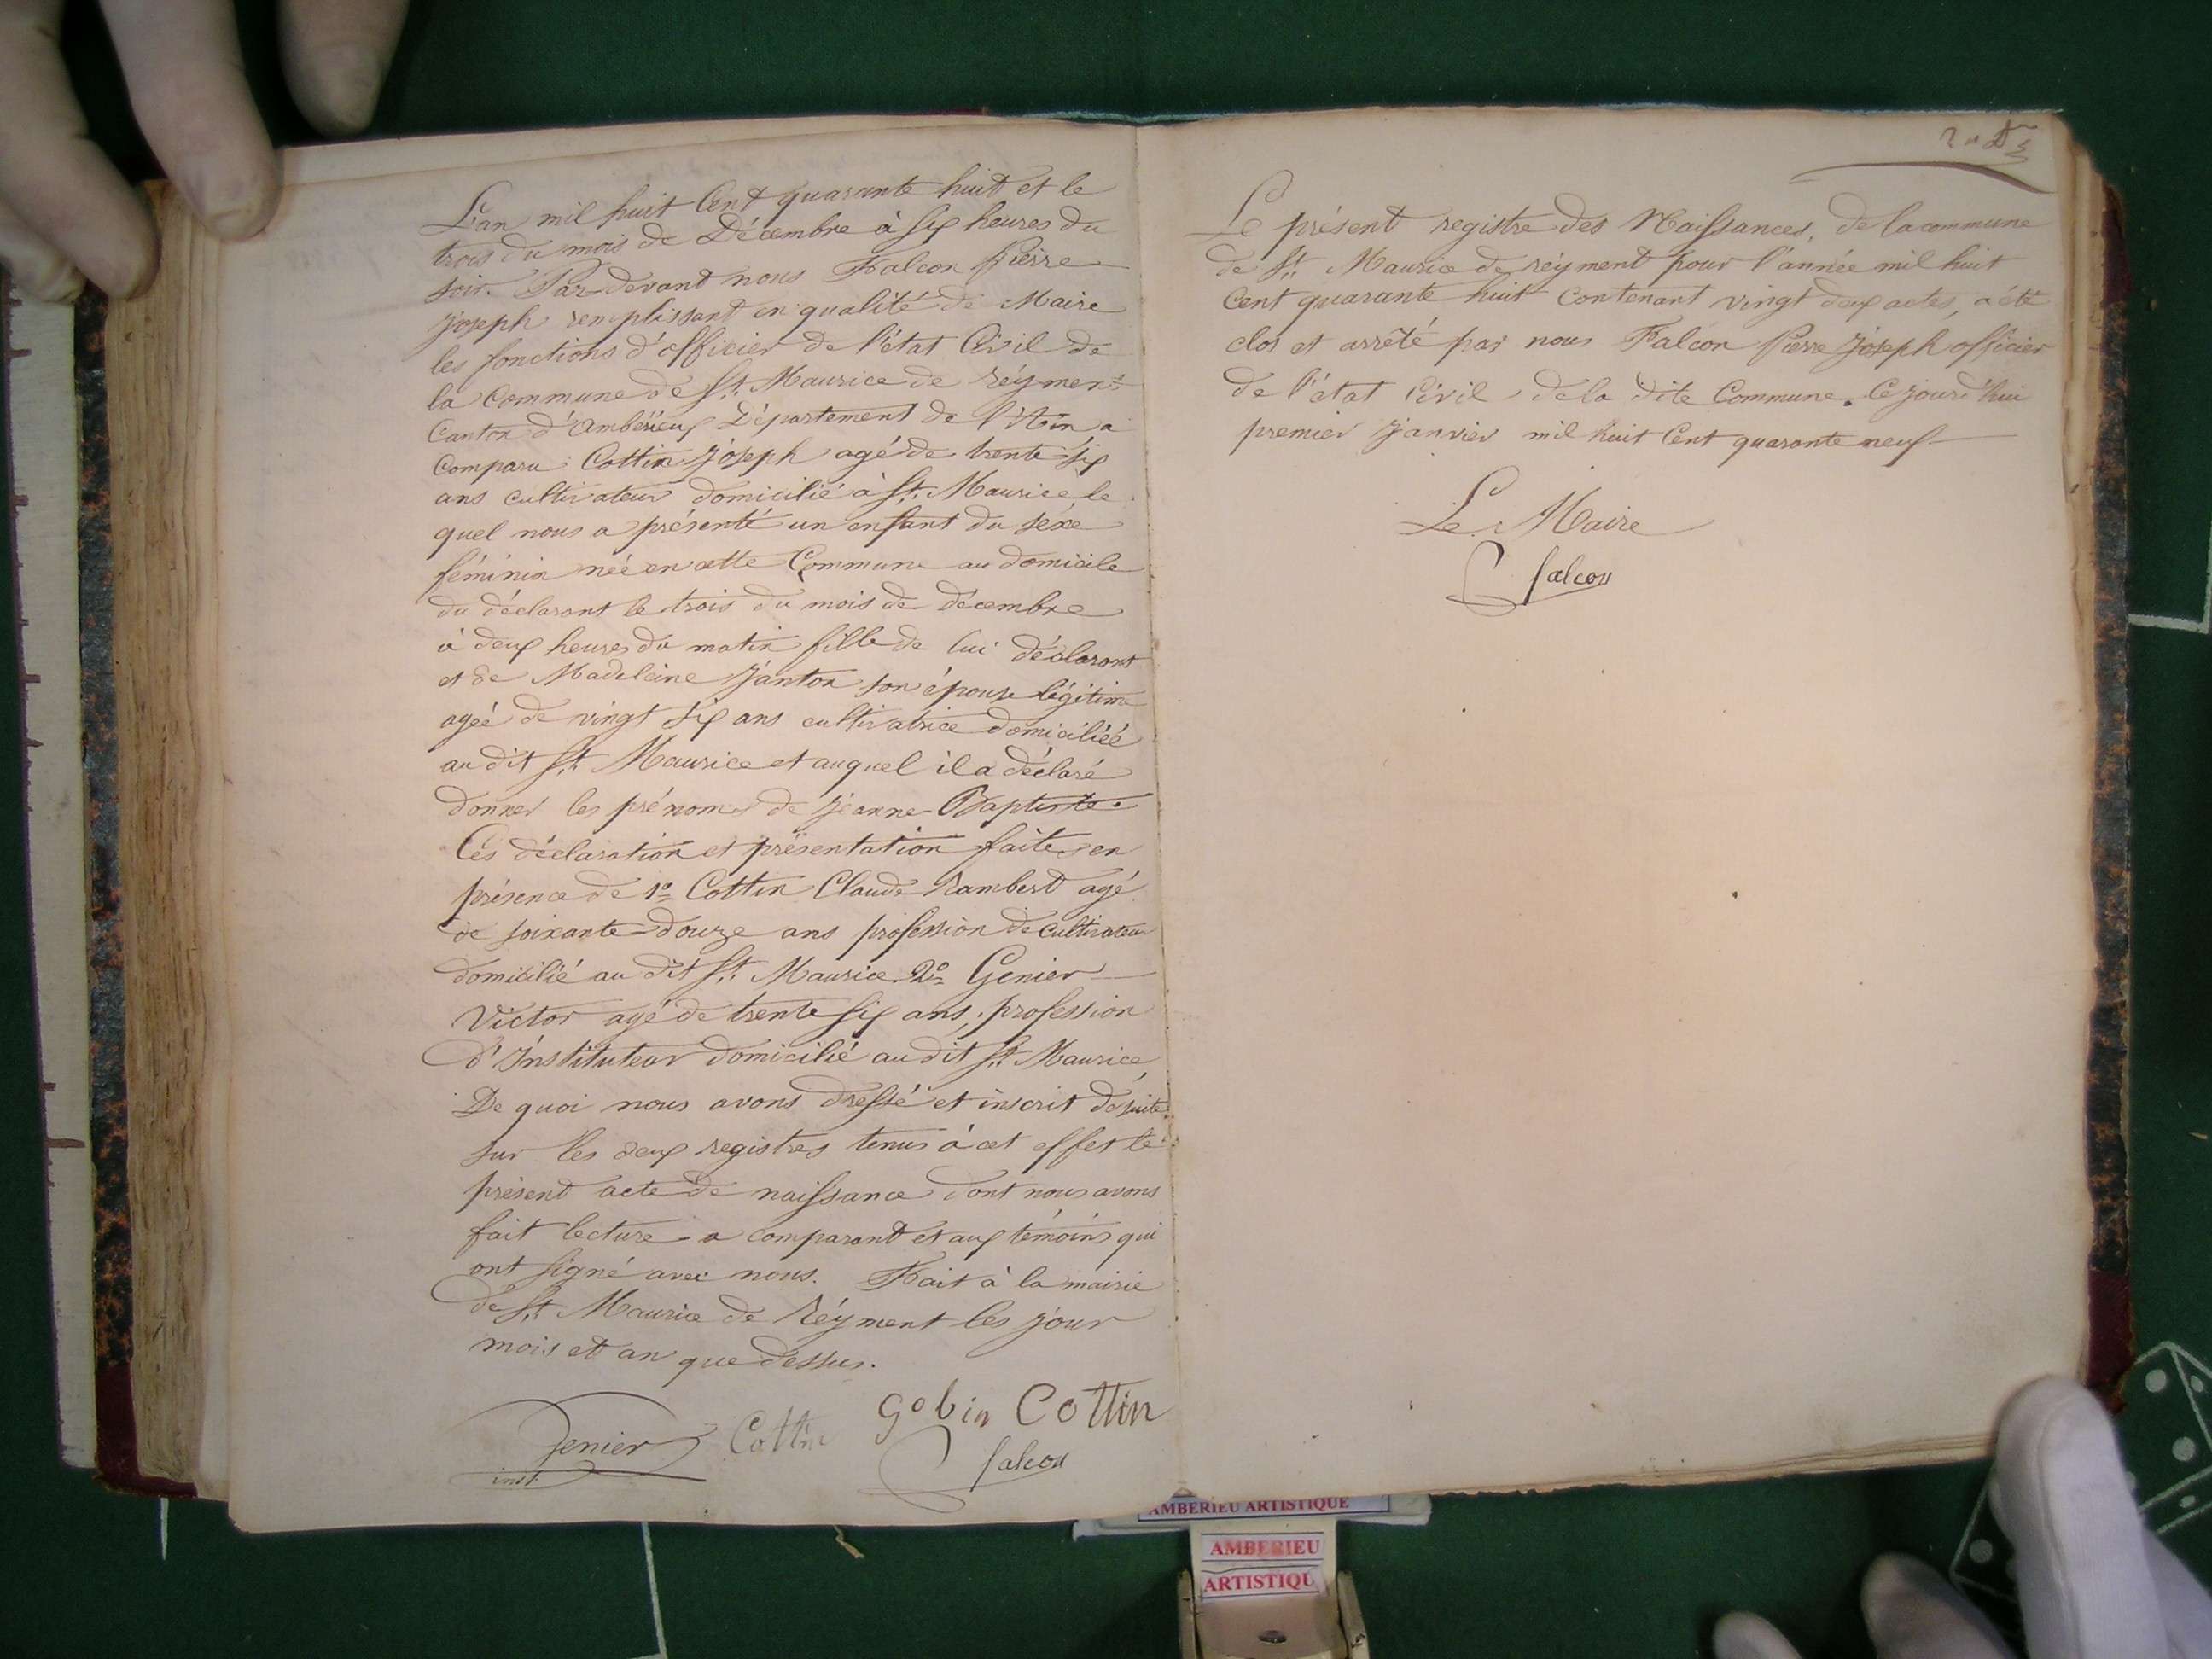 L'an mil huit Cent quarante huit et le
trois du mois de Décembre à six heures du
soir. Par devant nous Falcon Pierre
Joseph remplissant en qualité de Maire
les fonctions d'officier de l'état Civil de
la Commune de St. Maurice de Réyment
Canton d'Ambérieux Département de l'Ain a
Comparu Cottin Joseph agé de trente six
ans cultivateur domicilié à St. Maurice le
quel nous a présenté un enfant du séxe
féminin née en cette Commune au domicile
du déclarant le trois du mois de décembre
à deux heures du matin fille de lui déclarant
et de Madeleine Janton son épouse légitime
agée de vingt six ans cultivatrice domiciliée
au dit St. Maurice et auquel il a déclaré
donner les prénoms de Jeanne-Baptiste.
Cés déclaration et présentation faites en
présence de 1º Cottin Claude Rambert agé
de soixante-douze ans profession de cultivateur
domicilié au dit St. Maurice 2º Genier
Victor agé de trente six ans, profession
d'Instituteur domicilié au dit St. Maurice
De quoi nous avons dressé et inscrit de suite
sur les deux registres tenus à cet effet le
présent acte de naissance dont nous avons
fait lecture a comparant et aux témoins qui
ont signé avec nous. Fait à la mairie
de St. Maurice de Réyment les jour
mois et an que dessus.
Genier Cottin gobin Cottin
inst. falcon
Le présent registre des Naissances, de la commune
de St. Maurice de réyment pour l'année mil huit
Cent quarante huit contenant vingt deux actes, a été
clos et arrêté par nous Falcon Pierre Joseph officier
de l'état Civil de la dite Commune. Ce jourd'hui
premier Janvier mil huit Cent quarante neuf
Le Maire
falcon
AMBERIEU ARTISTIQUE
AMBERIEU
ARTISTIQU